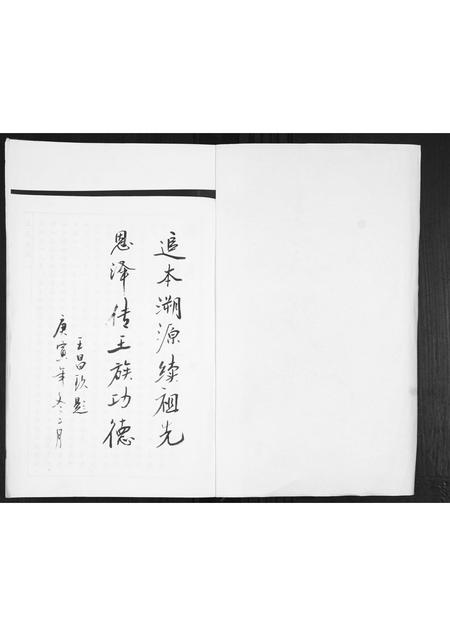 追本溯源续祖先
恩泽传王族功德
王昌玖题
庚寅年冬二月